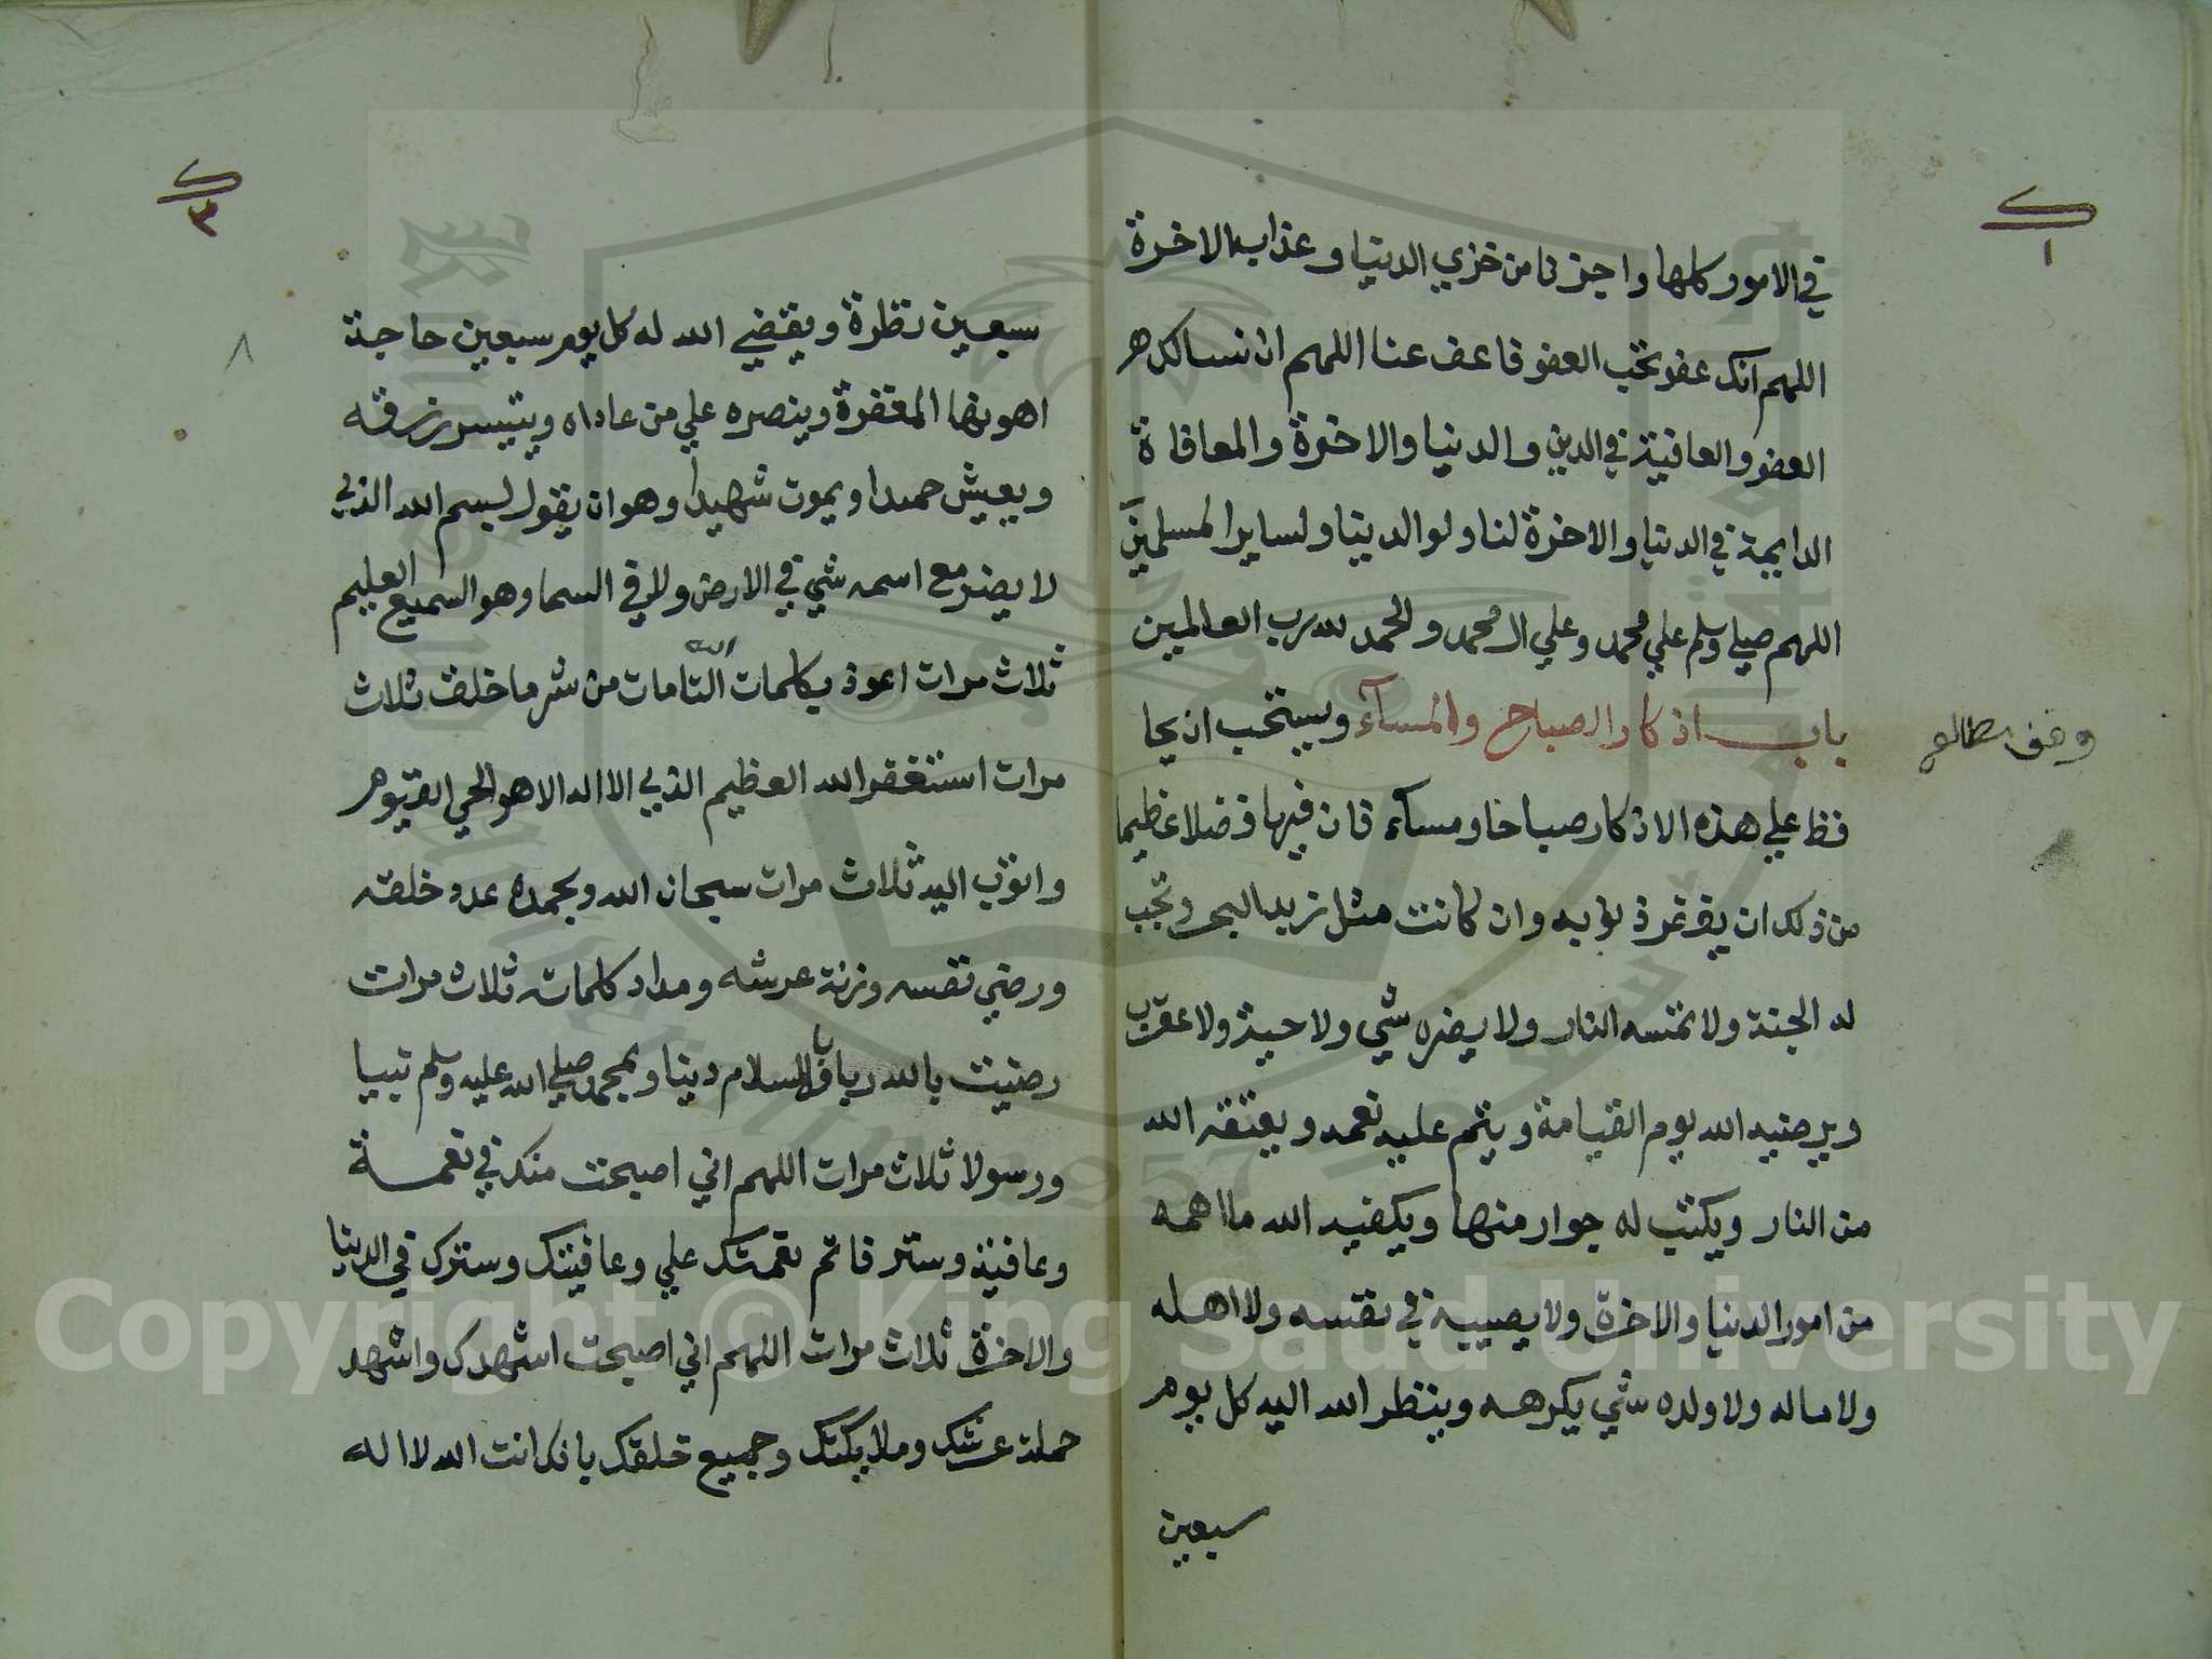 في الامور كلها واجرنا من خزي الدنيا وعذاب الاخرة
اللهم انك عفو تحب العفو فاعف عنا اللهم انا نسالك
العفو والعافية في الدين والدنيا والاخرة والمعافاة
الدايمة في الدنيا والاخرة لنا ولوالدينا ولساير المسلمين
اللهم صلي وسلم علي محمد وعلي ال محمد والحمد لله رب العالمين
باب اذكار الصباح والمسآء ويستحب ان يحا
فظ علي هذه الاذكار صباحا ومسآء فان فيها فضلا عظيما
من ذلك ان يغفر ذنوبه وان كانت مثل زبد البحر وتجب
له الجنة ولا تمسه النار ولا يضره شي ولا حية ولا عقرب
ويرضيه الله يوم القيامة ويتم عليه نعمه ويعتقه الله
من النار ويكتب له جوار منها ويكفيه الله ما اهمه
من امور الدنيا والاخرة ولا يصيبه في نفسه ولا اهله
ولا ماله ولا ولده شي يكرهه وينظر الله اليه كل يوم
سبعين
وقف
١
٣
٨
سبعين نظرة ويقضي الله له كل يوم سبعين حاجة
اهونها المغفرة وينصره علي من عاداه ويتيسر رزقه
ويعيش حميدا ويموت شهيدا وهو ان يقول بسم الله الذي
لا يضر مع اسمه شي في الارض ولا في السما وهو السميع العليم
ثلاث مرات اعوذ بكلمات الله التامات من شر ما خلق ثلاث
مرات استغفر الله العظيم الذي لا اله الا هو الحي القيوم
واتوب اليه ثلاث مرات سبحان الله وبحمده عدد خلقه
ورضي نفسه وزنة عرشه ومداد كلماته ثلاث مرات
رضيت بالله ربا وبالاسلام دينا وبمحمد صلي الله عليه وسلم نبيا
ورسولا ثلاث مرات اللهم اني اصبحت منك في نعمة
وعافية وستر فاتم نعمتك علي وعافيتك وسترك في الدنيا
والاخرة ثلاث مرات اللهم اني اصبحت اشهدك واشهد
حملة عرشك وملايكتك وجميع خلقك بانك انت الله لا اله
Copyright © King Saud University
1957